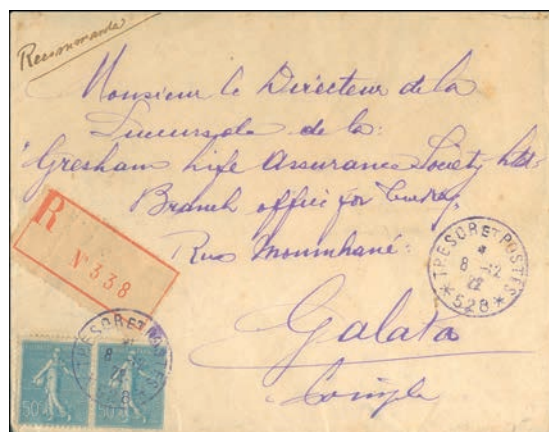 Recommandé
Monsieur le Directeur de la
Succursale de la
"Gresham Life Assurance Society Ltd.
Branch office for Turkey
Rue Moumhané
Galata
Conple
R
N° 338
TRESOR ET POSTES
*
8 -12
22
*528*
TRESOR ET POSTES
8
50c
50c